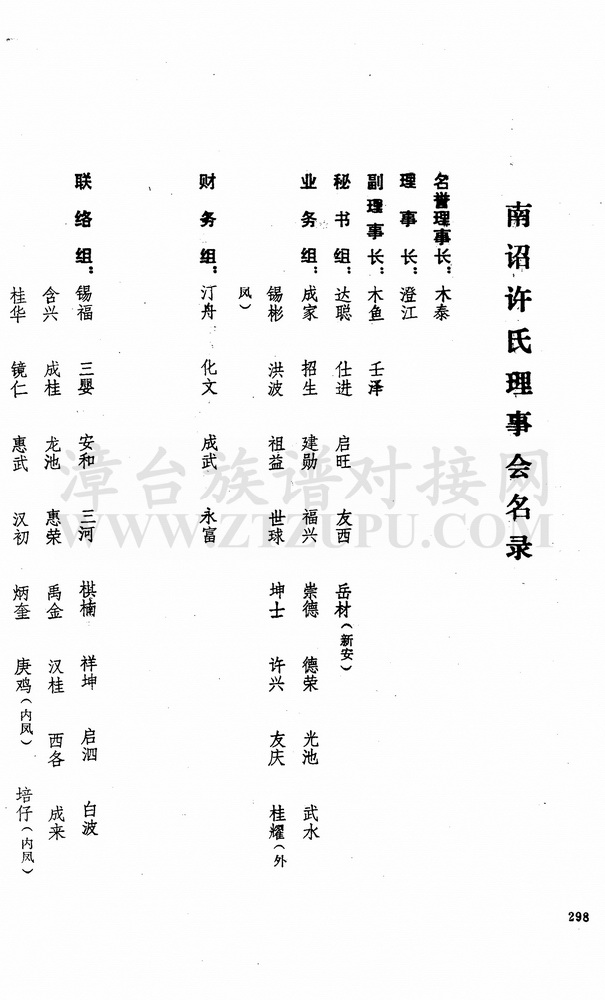 南诏许氏理事会名录
名誉理事长：木泰
理事长：澄江
副理事长：木鱼 壬泽
秘书组：达聪 仕进 启旺 友西 岳材（新安）
业务组：成家 招生 建勋 福兴 崇德 德荣 光池 武水
锡彬 洪波 祖益 世球 坤士 许兴 友庆 桂耀（外
凤）
财务组：汀舟 化文 成武 永富
联络组：锡福 三婴 安和 三河 棋楠 祥坤 启泗 白波
含兴 成桂 龙池 惠荣 禹金 汉桂 西各 成来
桂华 镜仁 惠武 汉初 炳奎 庚鸡（内凤） 培仔（内凤）
298
漳台族谱对接网
WWW.ZTZUPU.COM